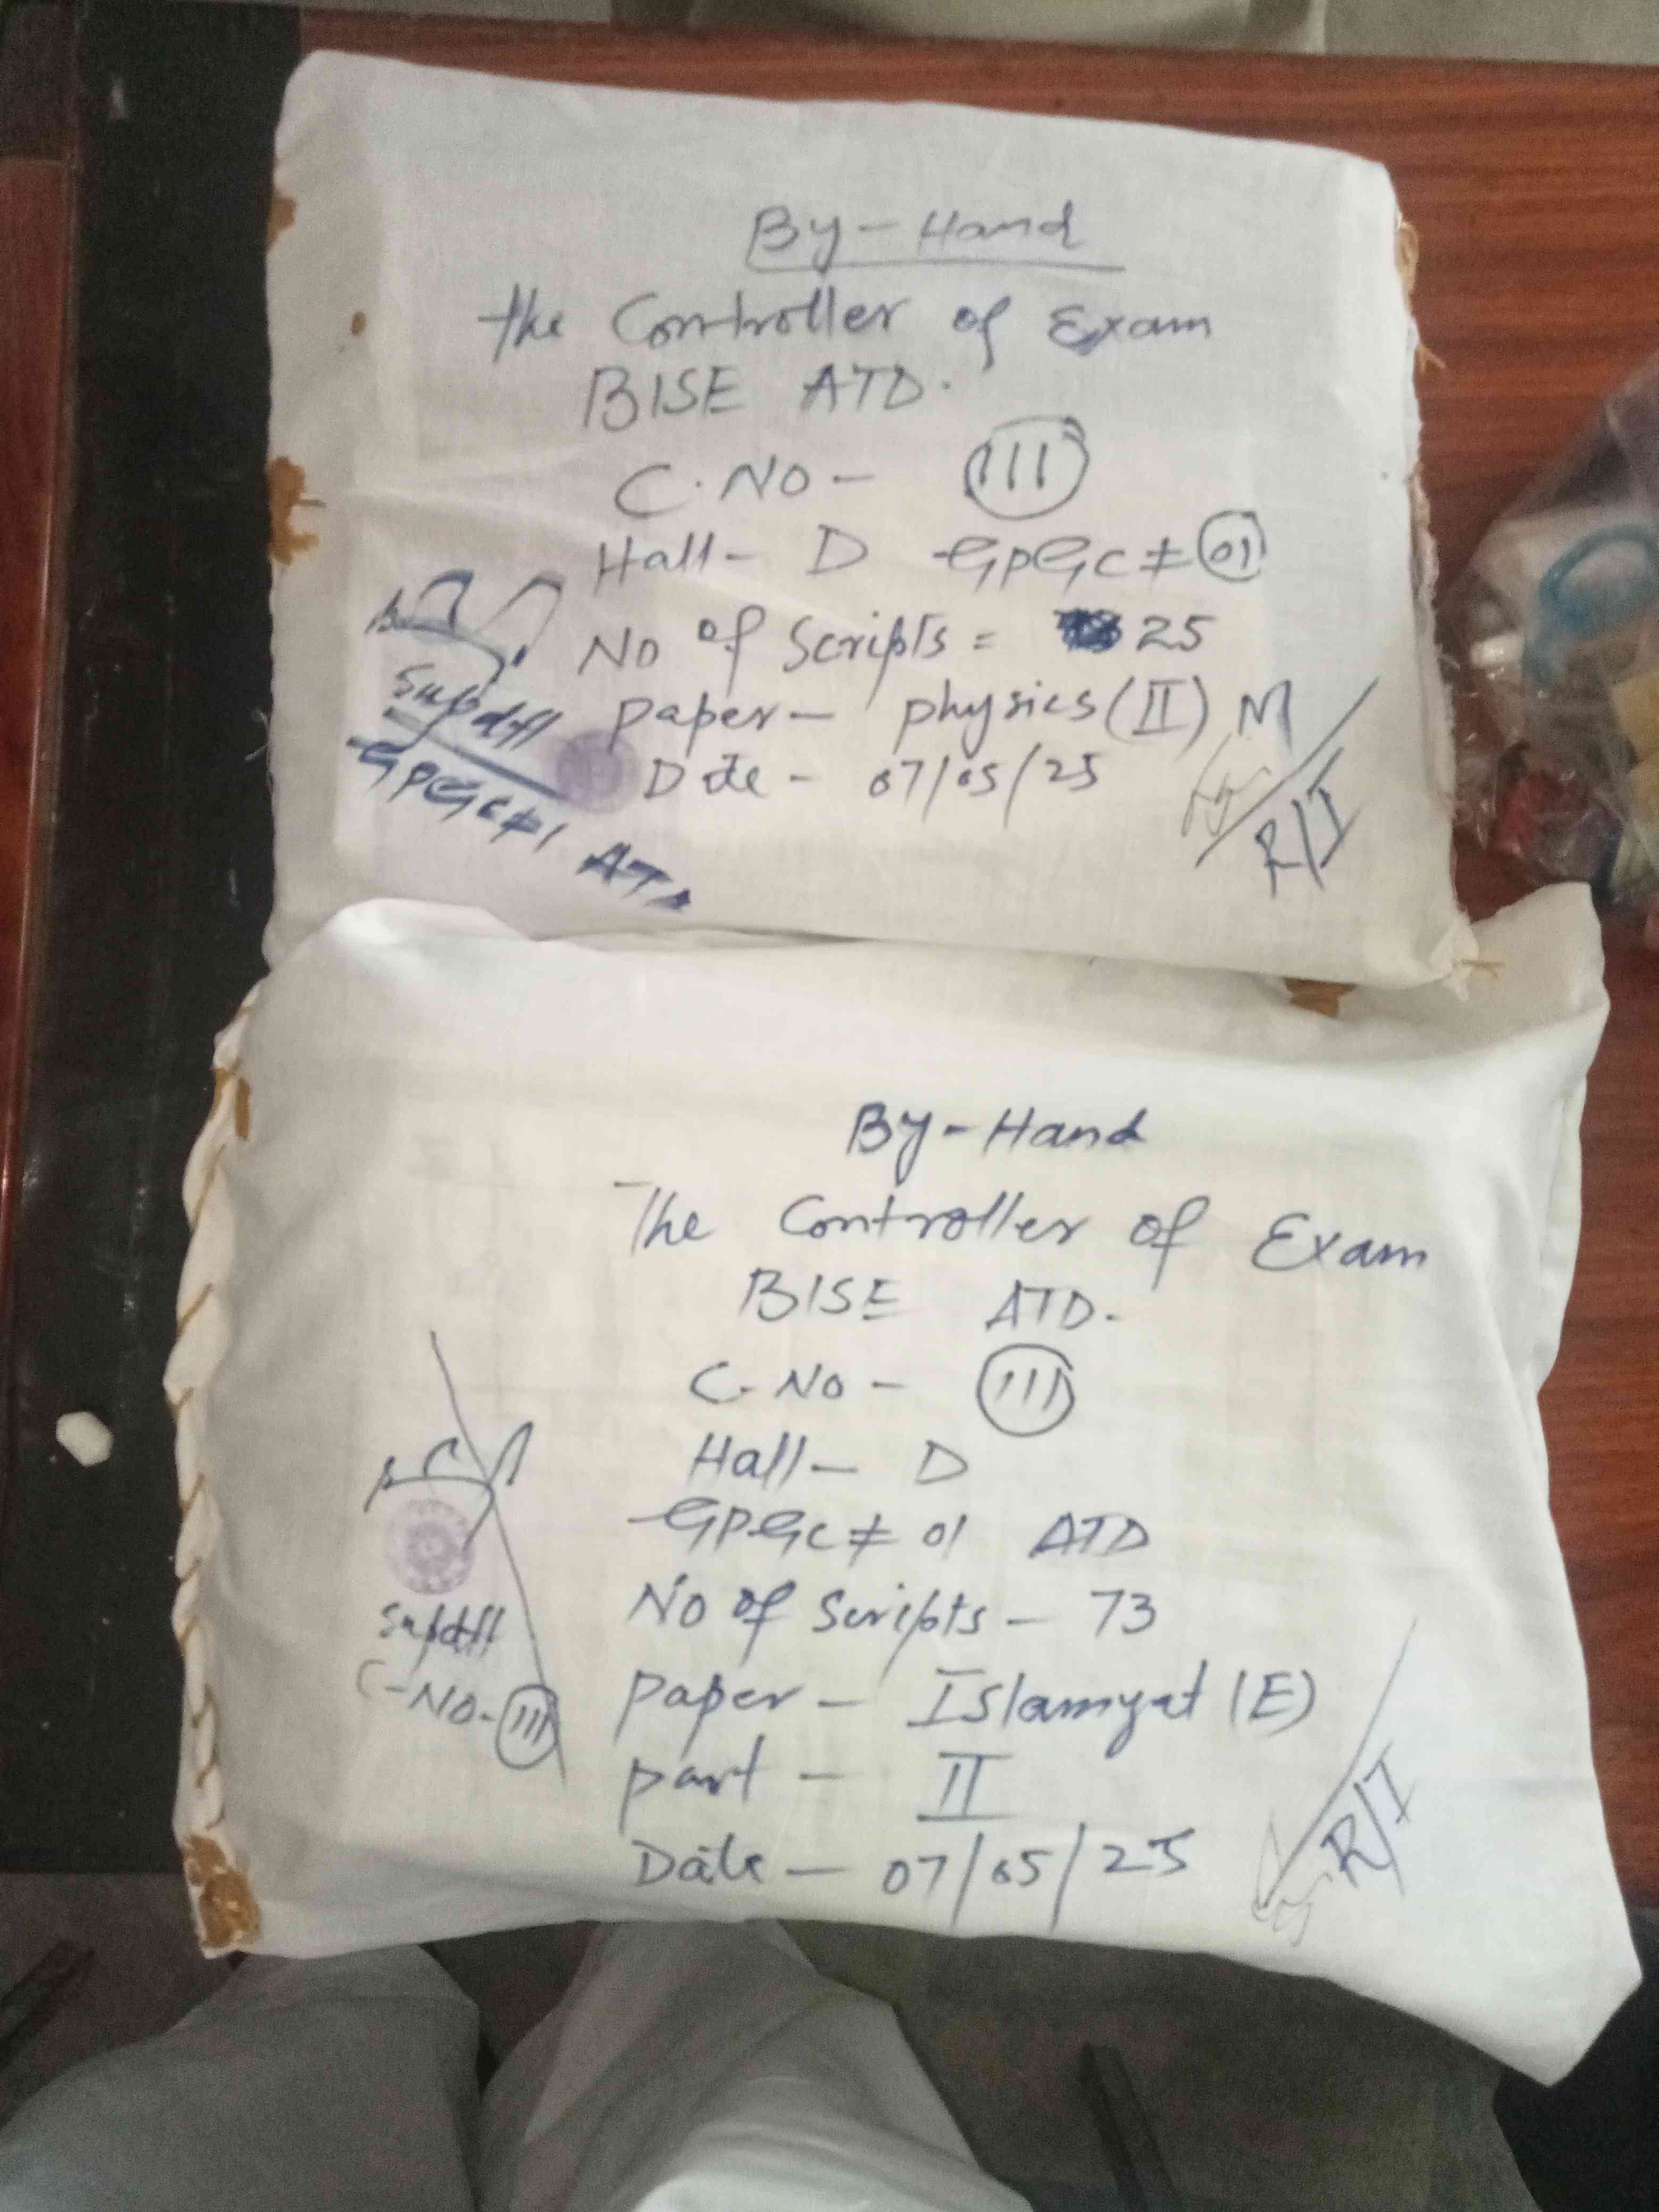 By-Hand
the Controller of Exam
BISE ATD.
C.No- 111
Hall- D GPGC # 01
No of Scripts = 25
paper- physics (II) M
Date - 07/05/25
Supdtt
GPGC#1 ATD
R/I
By-Hand
The Controller of Exam
BISE ATD.
C.No - 111
Hall- D
GPGC # 01 ATD
No of Scripts - 73
paper - Islamyat (E)
part - II
Date - 07/05/25
Supdtt
C-No-111
R/I